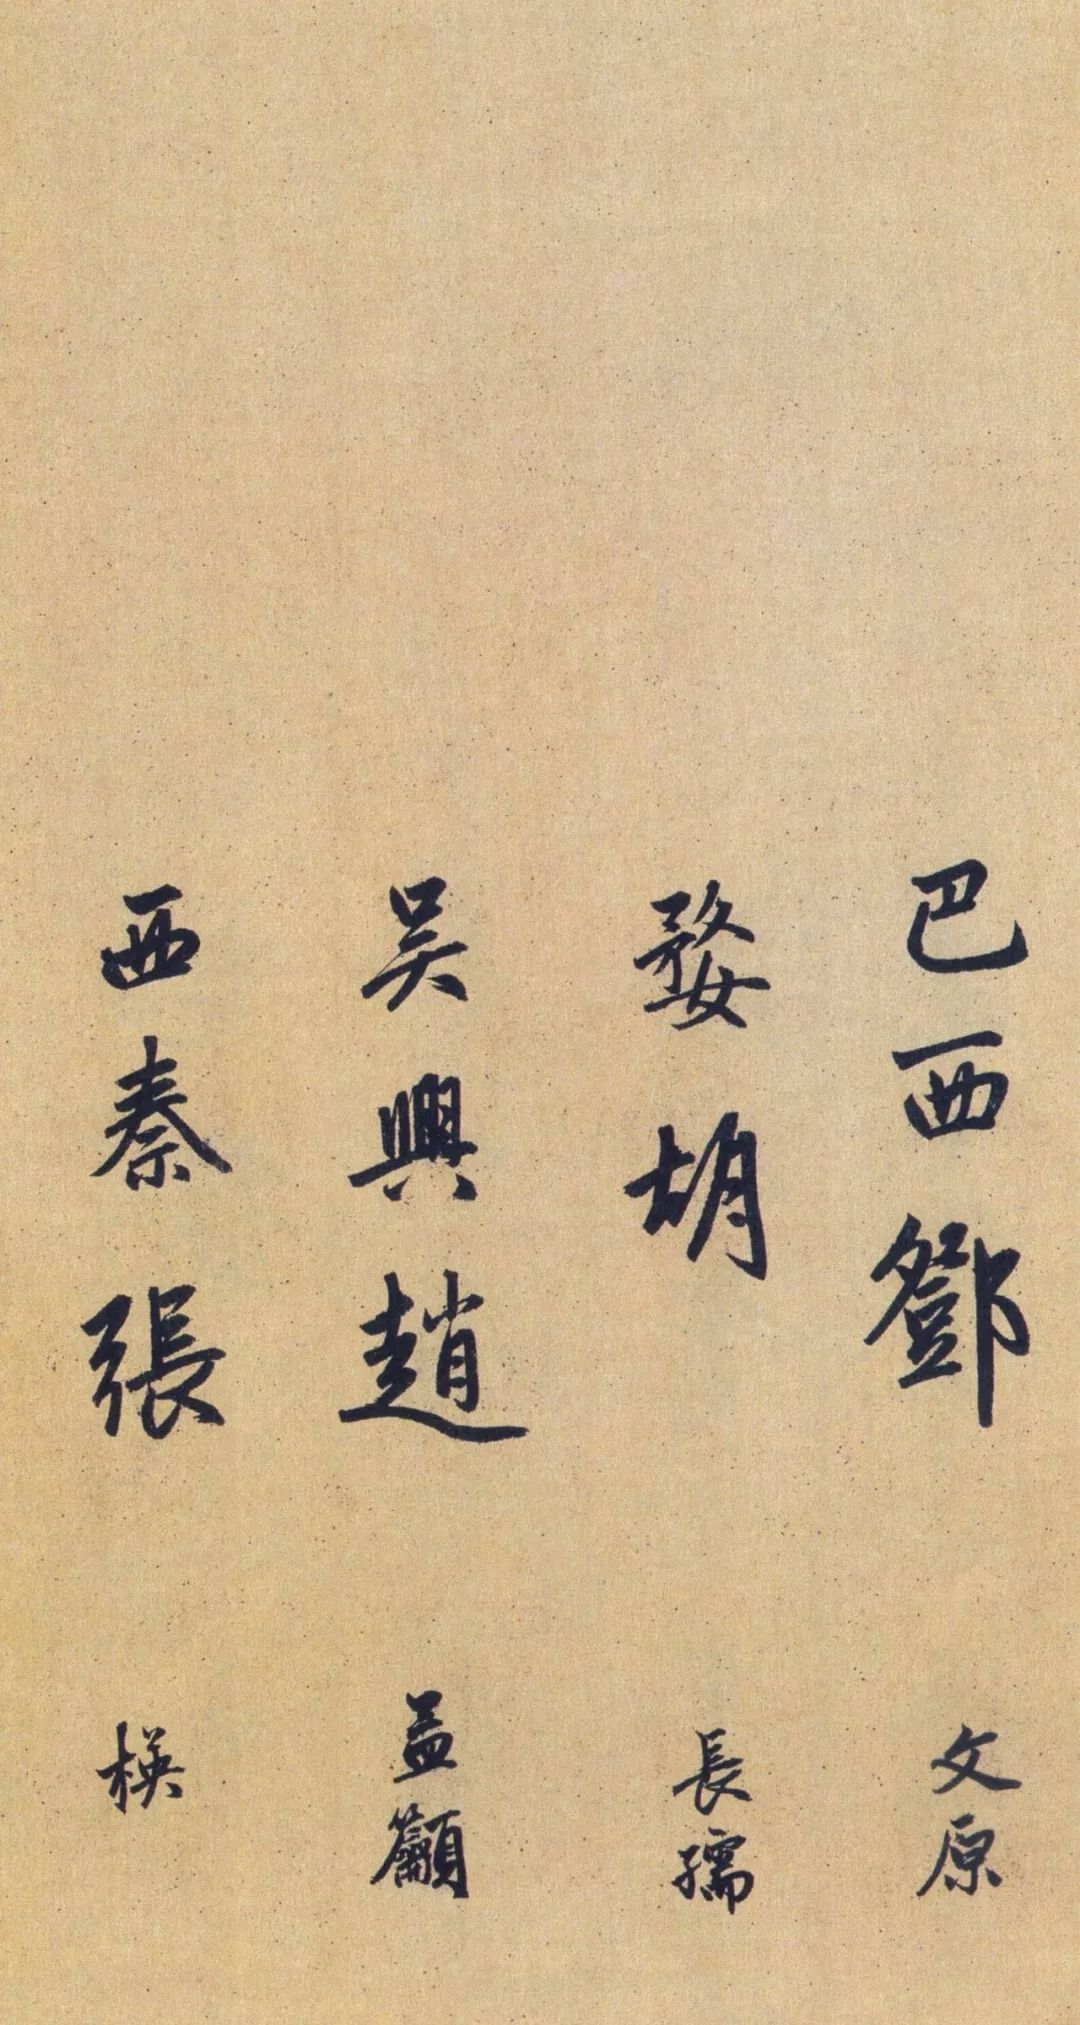 巴西鄧文原
婺胡長孺
吴興趙孟籲
西秦張楧